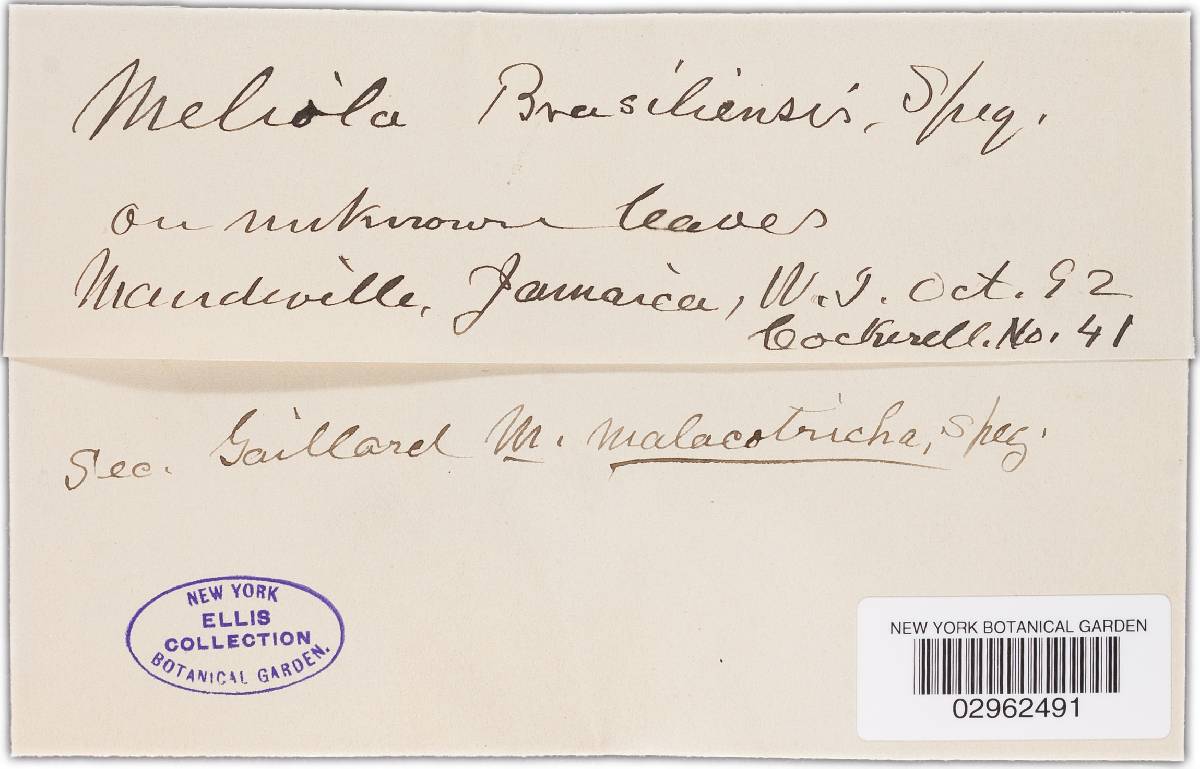 Meliola Brasiliensis, Speg.
on unknown leaves
Mandeville, Jamaica, W.I. Oct. 92
Cockerell. No. 41
Sec. Gaillard M. malacotricha, Speg.
NEW YORK
ELLIS
COLLECTION
BOTANICAL GARDEN.
NEW YORK BOTANICAL GARDEN
02962491